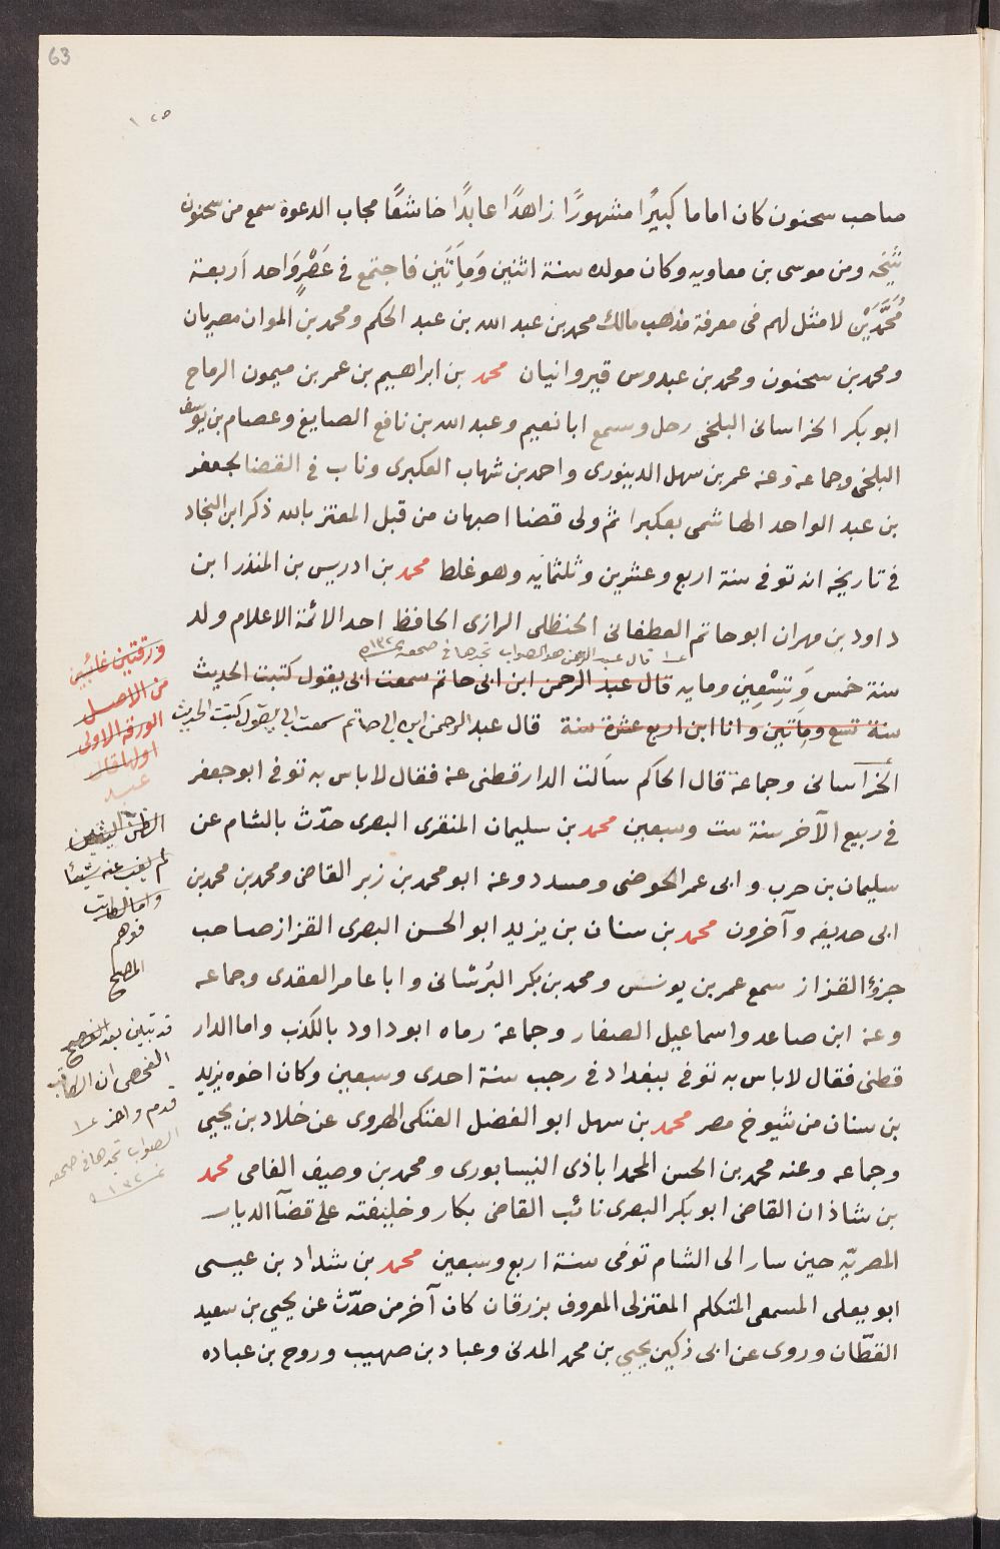 63
١٢٥
صاحب سحنون كان اماما كبيرًا مشهورًا زاهدًا عابدًا خاشعًا مجاب الدعوة سمع من سحنون
شيخه ومن موسى بن معاويه وكان مولده سنة اثنين وَمِاَتَين فاجتمع فى عَصْرٍ وَاحد اَربعة
مُحَمَّدَيْن لا مثل لهم فى معرفة مذهب مالك محمد بن عبد الله بن عبد الحكم ومحمد بن الموان مصريان
ومحمد بن سحنون ومحمد بن عبدوس قيروانيان محمد بن ابراهيم بن عمر بن ميمون الرماح
ابو بكر الخراسانى البلخى رحل وسمع ابا نعيم وعبد الله بن نافع الصايغ وعصام بن يوسف
البلخى وجماعة وعنه عمر بن سهل الدينورى واحمد بن شهاب العكبرى وناب فى القضا لجعفر
بن عبد الواحد الهاشمى بعكبرا ثم ولى قضا اصبهان من قبل المعتز بالله ذكر ابن النجاد
فى تاريخه انه توفى سنة اربع وعشرين وثلثمايه وهو غلط محمد بن ادريس بن المنذر ابن
داود بن مهران ابو حاتم العطفانى الحنظلى الرازى الحافظ احد الائمة الاعلام ولد
قال عبد الرحمن هو الصواب تجدها فى صحفه ١٣٢
سنة خمس وَتِسْعِين ومايه قال عبد الرحمن ابن ابى حاتم سمعت ابى يقول كتبت الحديث
سنة تسع ومِاتَين وانا ابن اربع عشرة سنة قال عبد الرحمن ابن ابى حاتم سمعت ابى يقول كتبت الحديث
الخراسانى وجماعة قال الحاكم سالت الدارقطنى عنه فقال لا باس به توفى ابو جعفر
فى ربيع الآخر سنة ست وسبعين محمد بن سليمان المنقرى البصرى حدّث بالشام عن
سليمان بن حرب وابى عمر الحوضى ومسدد وعنه ابو محمد بن زبر القاضى ومحمد بن محمد بن
ابى حديفه وآخرون محمد بن سنان بن يزيد ابو الحسن البصرى القزاز صاحب
جزؤ القزاز سمع عمر بن يونس ومحمد بن بكر البُرشانى وابا عامر العقدى وجماعه
وعنه ابن صاعد واسماعيل الصفار وجماعة رماه ابو داود بالكذب واما الدار
قطنى فقال لا باس به توفى ببغداد فى رجب سنة احدى وسبعين وكان اخوه يزيد
بن سنان من شيوخ مصر محمد بن سهل ابو الفضل العتكى الهروى عن خلاد بن يحيى
وجماعه وعنه محمد بن الحسن المحمداباذى النيسابورى ومحمد بن وصيف الفامى محمد
بن شاذان القاضى ابو بكر البصرى نائب القاضى بكار وخليفته على قضآ الديار
المصريّه حين سار الى الشام توفى سنة اربع وسبعين محمد بن شداد بن عيسى
ابو يعلى المسمعى المتكلم المعتزلى المعروف بزرقان كان آخر من حدّث عن يحيى بن سعيد
القطّان وروى عن ابى زكين يحيى بن محمد المدنى وعباد بن صهيب وروح بن عباده
ورقتين غائبين
من الاصل
الورقة الاولى
اولها قال
عبد
لم يغب عنه شيئا
واما الكاتب
فوهم
المصحح
قد تبين بعد
الفحص ان الكاتب
قدم واخر
الصواب تجدها فى صحفه
١٣٢